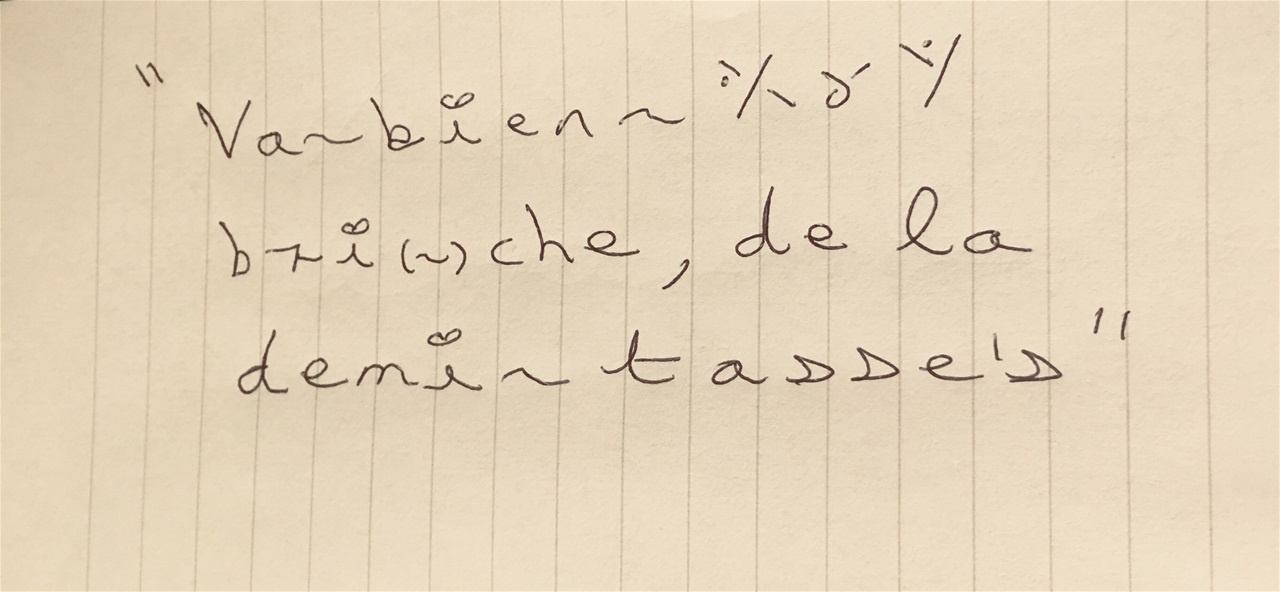 "Va~bien~ ⁒ ŏ ⁒
bri(~)che, de la
demi~tasse's"